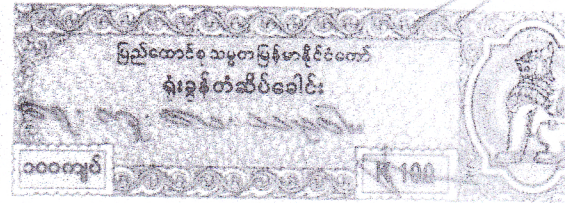 ပြည်ထောင်စု သမ္မတ မြန်မာနိုင်ငံတော်
ရုံးခွန်တံဆိပ်ခေါင်း
၁၀၀ကျပ်
K 100